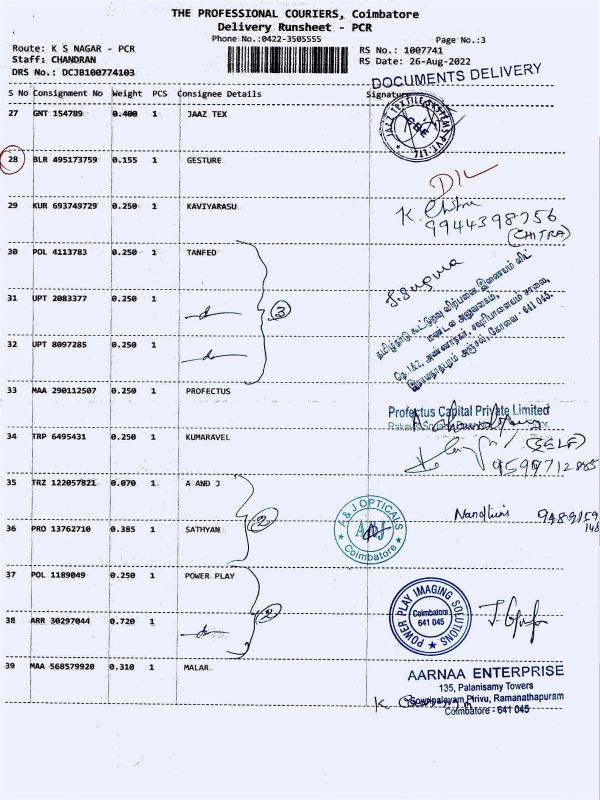 THE PROFESSIONAL COURIERS, Coimbatore
Delivery Runsheet - PCR
Phone No.:0422-3505555
Page No.:3
Route: K S NAGAR - PCR
RS No.: 1007741
Staff: CHANDRAN
RS Date: 26-Aug-2022
DRS No.: DCJB100774103
DOCUMENTS DELIVERY
S No Consignment No Weight PCS Consignee Details Signature
27 GNT 154789 0.400 1 JAAZ TEX
JAAZ TEXTILE SYSTEMS PVT. LTD.
CBE
28 BLR 495173759 0.155 1 GESTURE
D/L
29 KUR 693749729 0.250 1 KAVIYARASU
K. Chitra
9944398756
(CHITRA)
30 POL 4113783 0.250 1 TANFED
3
தமிழ்நாடு கூட்டுறவு விற்பனை இணையம் லிட்
மண்டல அலுவலகம்,
இராமநாதபுரம் அஞ்சல், கோவை - 641 045.
31 UPT 2083377 0.250 1
32 UPT 8097285 0.250 1
33 MAA 290112507 0.250 1 PROFECTUS
Profectus Capital Private Limited
34 TRP 6495431 0.250 1 KUMARAVEL
(SELF)
9597712885
35 TRZ 122057821 0.070 1 A AND J
2
A & J OPTICALS
A&J
Coimbatore
Nandhini 9489159
148
36 PRO 13762710 0.385 1 SATHYAN
37 POL 1189049 0.250 1 POWER PLAY
2
POWER PLAY IMAGING SOLUTIONS
Coimbatore
641 045
38 ARR 30297044 0.720 1
39 MAA 568579920 0.310 1 MALAR
AARNAA ENTERPRISE
135, Palanisamy Towers
Sowripalayam Pirivu, Ramanathapuram
Coimbatore - 641 045